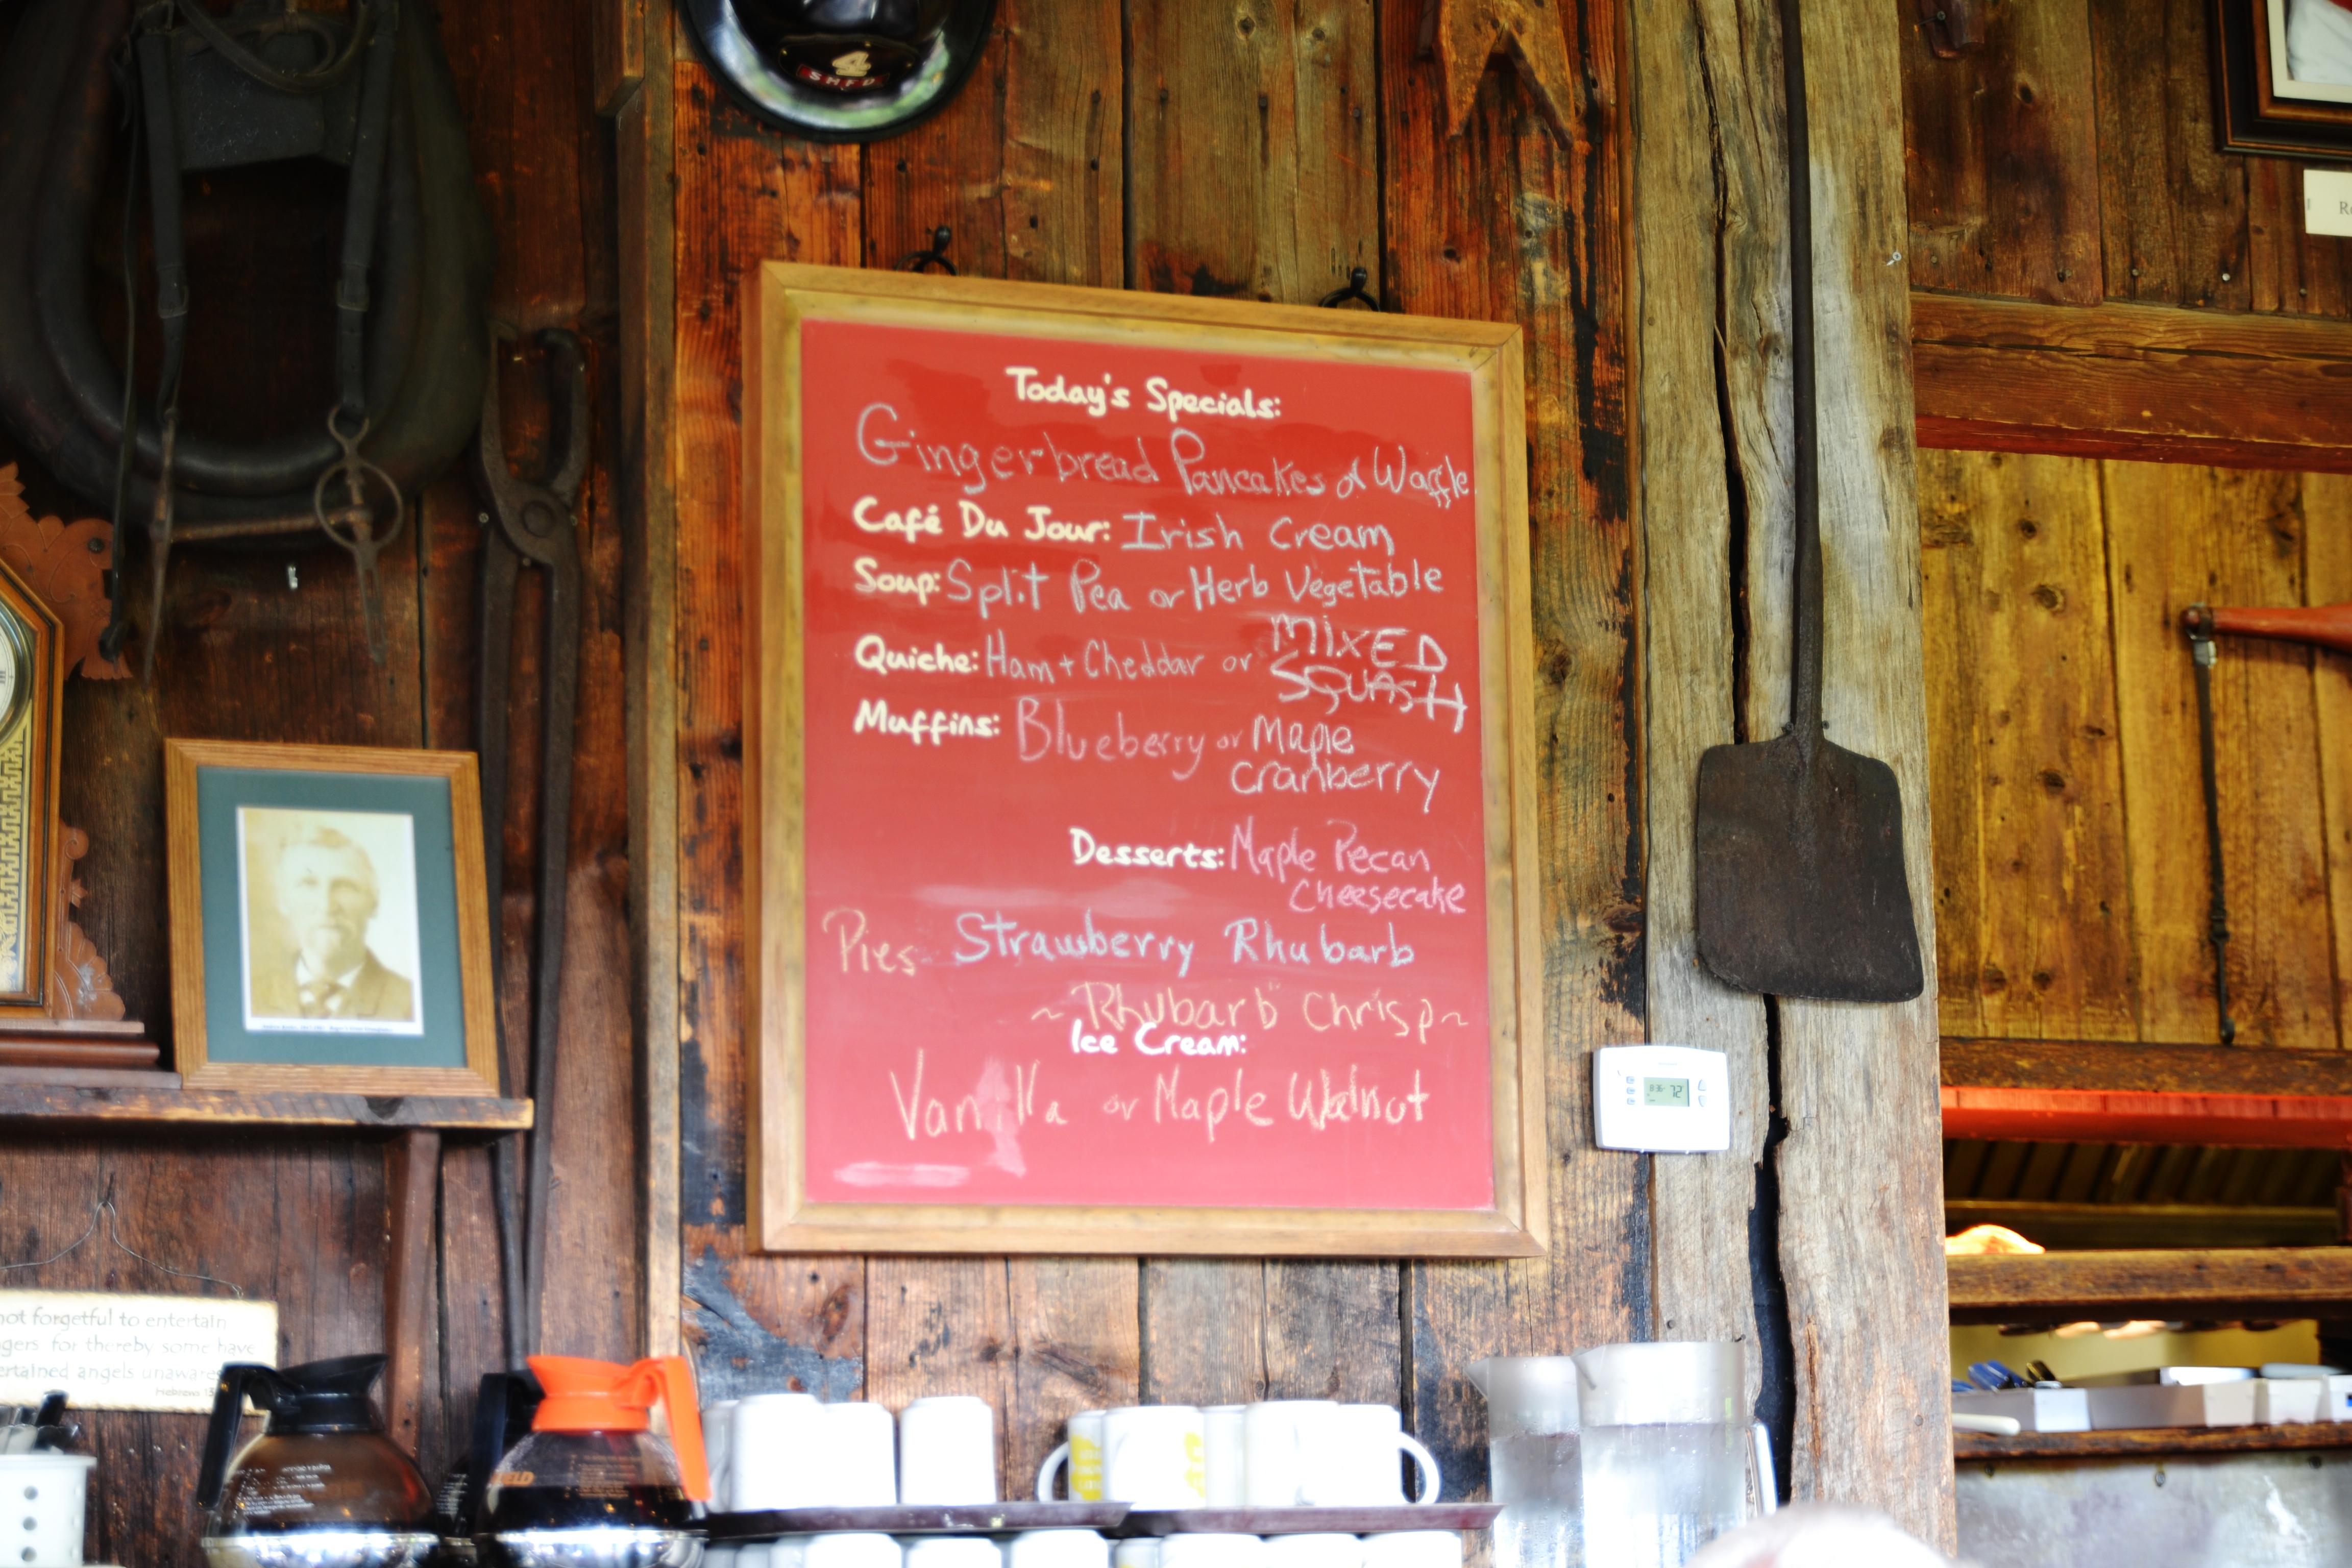 S.H.F.D.
Today's Specials:
Gingerbread Pancakes or Waffle
Café Du Jour: Irish Cream
Soup: Split Pea or Herb Vegetable
Quiche: Ham + Cheddar or MIXED
SQUASH
Muffins: Blueberry or Maple
Cranberry
Desserts: Maple Pecan
Cheesecake
Pies Strawberry Rhubarb
~"Rhubarb" Chrisp~
Ice Cream:
Vanilla or Maple Walnut
72
not forgetful to entertain
gers for thereby some have
ertained angels unawares
Hebrews 13